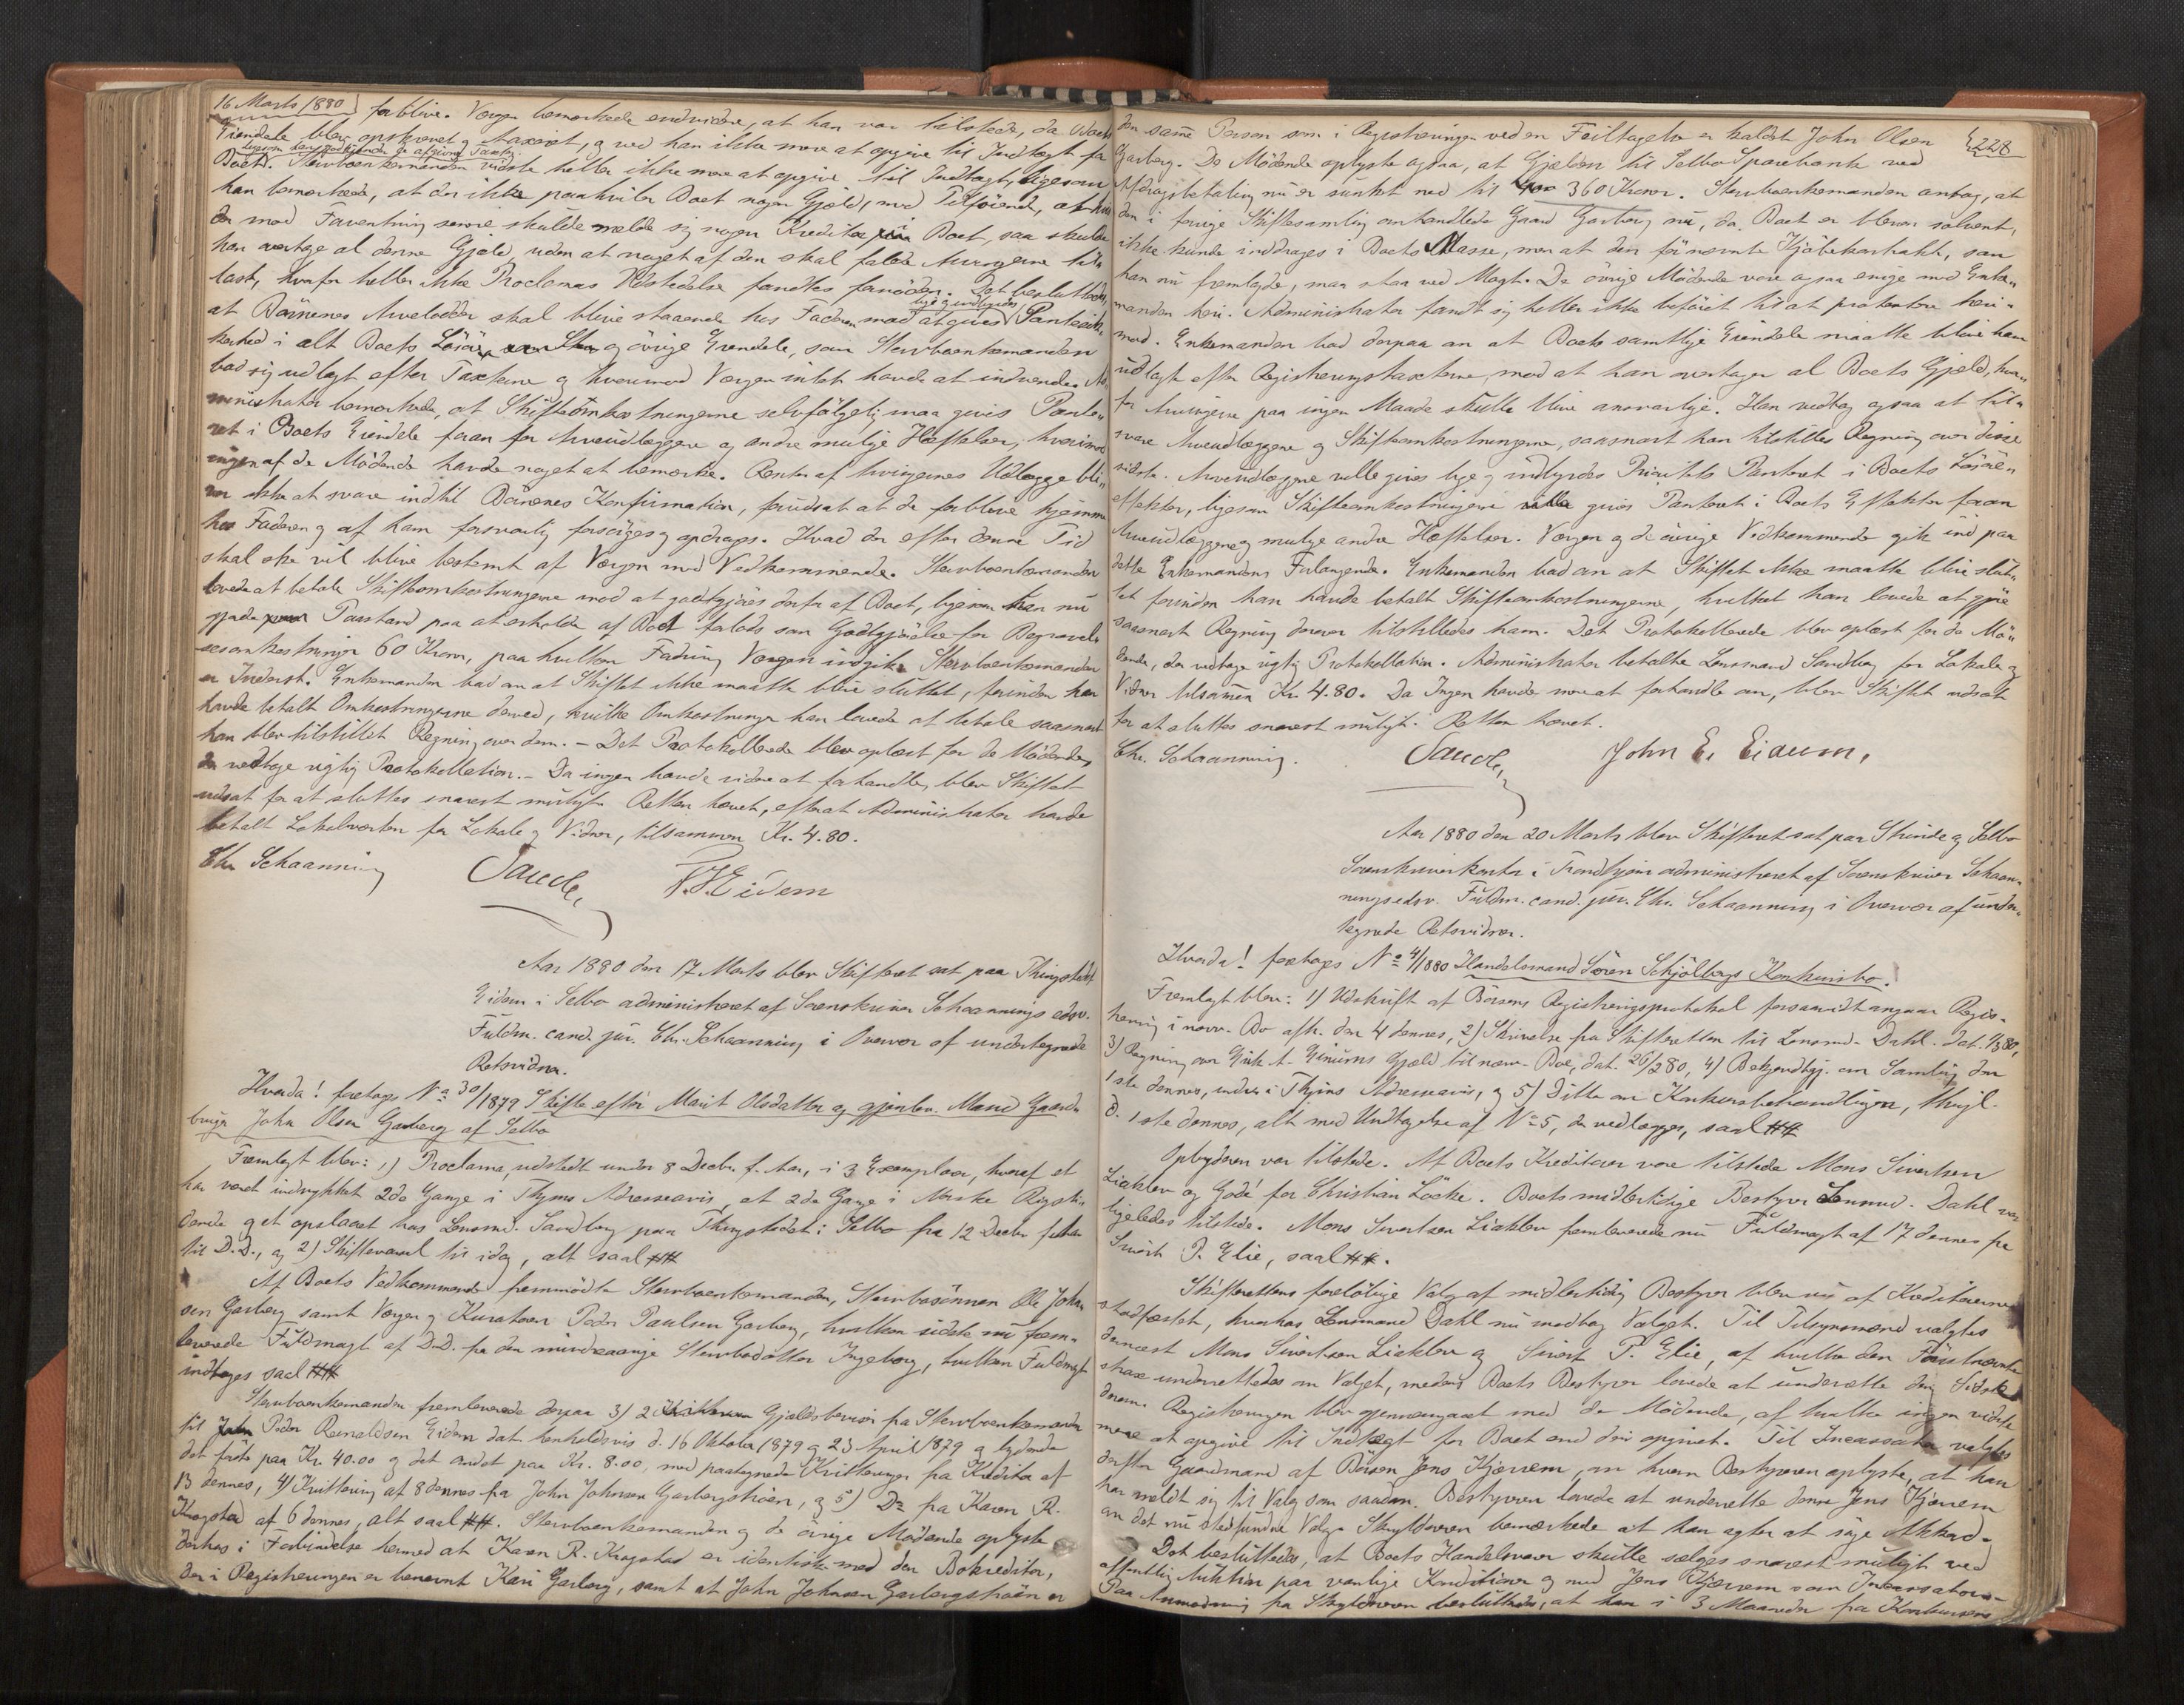 16 Marts 1880 } forblive. Værgen bemærkede endvidere, at han var tilstede, da Boets
Eiendele blev opskrevet og taxeret, og ved han ikke mere at opgive til Indtægt for
Boet. Stervboenkemanden vidste heller ikke mere at opgive til Indtægt, ligesom
han bemærkede, at der ikke paahviler Boet nogen Gjæld, med Tilføiende, at hvis
der mod Forventning senere skulde melde sig nogen Kreditor i Boet, saa skulde
han overtage al denne Gjæld, uden at noget af den skal falde Arvingerne til
last, hvorfor heller ikke Proclamas Udstedelse fandtes fornøden. Det besluttedes,
at Børnenes Arvelodder skal blive staaende hos Faderen mod at gives lige og indbyrdes Pantesik-
kerhed i alt Boets Løsøre og øvrige Eiendele, som Stervboenkemanden
bad sig udlagt efter Taxterne og hvorimod Værgen intet havde at indvende. Ad-
ministrator bemærkede, at Skifteomkostningerne selvfølgelig maa gives Pante-
ret i Boets Eiendele foran for Arveudlæggene og andre mulige Hæftelser, hvorimod
ingen af de Mødende havde noget at bemærke. Renter af Arvingernes Udlægge bli-
ver ikke at svare indtil Børnenes Konfirmation, forudsat at de forblive hjemme
hos Faderen og af ham forsvarlig forsørges og opdrages. Hvad der efter denne Tid
skal ske vil blive bestemt af Værgen med Vedkommende. Stervboenkemanden
lovede at betale Skifteomkostningerne mod at godtgjøres derfor af Boet, ligesom han nu
gjorde Paastand paa at erholde af Boet forlods som Godtgjørelse for Begravel-
sesomkostninger 60 Kroner, paa hvilken Fodring Værgen indgik. Stervboenkemanden
er Inderst. Enkemanden bad om at Skiftet ikke maatte blive sluttet, forinden han
havde betalt Omkostningerne derved, hvilke Omkostninger han lovede at betale saasnart
han blev tilstillet Regning over dem. – Det Protokollerede blev oplæst for de Mødende,
der vedtoge rigtig Protokollation. – Da ingen havde videre at forhandle, blev Skiftet
udsat for at sluttes snarest muligt. Retten hævet, efterat Administrator havde
betalt Lokalværten for Lokale og Vidner, tilsammen Kr. 4.80.
Chr Schaanning
Eidem
Aar 1880 den 17 Marts blev Skifteret sat paa Thingstedet
Eidem i Selbo administreret af Sorenskriver Schaannings edsv.
Fuldm. cand. jur. Chr. Schaanning i Overvær af undertegnede
Retsvidner.
Hvorda! foretoges No 30/1879 Skifte efter Marit Olsdatter og gjenlev. Mand Gaard-
bruger John Olsen Garberg af Selbo
Fremlagt blev: 1) Proclama, udstedt under 8 Decbr. f. Aar, i 3 Exemplarer, hvoraf et
har været indrykket 2de Gange i Thjems Adresseavis, et 2de Gange i Norske Rigsti-
dende og et opslaaet hos Lensmd. Sandberg paa Thingstedet i Selbo fra 12 Decbr
til D.D., og 2) Skiftevarsel til idag, alt saal. ##
Af Boets Vedkommende fremmødte Stervboenkemanden, Stervbosønnen Ole John-
sen Garberg samt Værgen og Kuratoren Peder Paulsen Garberg, hvilken sidste nu frem-
leverede Fuldmagt af D.D. fra den mindreaarige Stervbodatter Ingeborg, hvilken Fuldmagt
indtages saal ##
Stervboenkemanden fremleverede derpaa 3) 2 Gjældsbeviser fra Stervboenkemanden
til Peder Reinaldsen Eidem dat. henholdsvis d. 16 Oktober 1879 og 23 April 1879 og lydende
det første paa Kr. 40.00 og det andet paa Kr. 8.00, med paategnede Kvitteringer fra Kreditor af
13 dennes, 4) Kvittering af 8 dennes fra John Johnsen Garbergstrøen, og 5) Do fra Karen R.
Kragstad af 6 dennes, alt saal ##. Stervboenkemanden og de øvrige Mødende oplyste
derhos i Forbindelse hermed at Karen R. Kragstad er identisk med den Bokreditor,
der i Registreringen er benævnt Kari Garberg, samt at John Johnsen Garbergstrøen er
228
den samme Person som i Registreringen ved en Feiltagelse er kaldet John Olsen
Garberg. De Mødende oplyste ogsaa, at Gjælden til Selbo Sparebank ved
Afdragsbetaling nu er sunket ned til 360 Kroner. Stervboenkemanden antog, at
den i forrige Skiftesamling omhandlede Gaard Garberg nu, da Boet er bleven solvent,
ikke kunde inddrages i Boets Masse, men at den førnævnte Kjøbekontrakt, som
han nu fremlagde, maa staa ved Magt. De øvrige Mødende vare ogsaa enige med Enke-
manden heri. Administrator fandt sig heller ikke beføiet til at protestere heri-
mod. Enkemanden bad derpaa om at Boets samtlige Eiendele maatte blive ham
udlagt efter Registreringstaxterne, mod at han overtager al Boets Gjæld, hvor-
for Arvingerne paa ingen Maade skulle blive ansvarlige. Han vedtog ogsaa at til-
svare Arveudlæggene og Skifteomkostningerne, saasnart han tilstilles Regning over disse
sidste. Arveudlæggene ville gives lige og indbyrdes Prioritets Panteret i Boets Løsøre-
effekter, ligesom Skifteomkostningerne gives Panteret i Boets Effekter foran
Arveudlæggene og mulige andre Hæftelser. Værgen og de øvrige Vedkommende gik ind paa
dette Enkemandens Forlangende. Enkemanden bad om at Skiftet ikke maatte blive slut-
tet forinden han havde betalt Skifteomkostningerne, hvilket han lovede at gjøre
saasnart Regning derover tilstilledes ham. Det Protokollerede blev oplæst for de Mø-
dende, der vedtoge rigtig Protokollation. Administrator betalte Lensmand Sandberg for Lokale og
Vidner tilsammen Kr. 4.80. Da Ingen havde mere at forhandle om, blev Skiftet udsat
for at sluttes snarest muligt. Retten hævet.
Chr. Schaanning.
John E. Eidem,
Aar 1880 den 20 Marts blev Skifteret sat paa Strinde og Selbo
Sorenskriverkontor i Trondhjem administreret af Sorenskriver Schaan-
nings edsv. Fuldm. cand. jur. Chr. Schaanning i Overvær af under-
tegnede Retsvidner.
Hvorda! foretoges No 4/1880 Handelsmand Søren Schjølbergs Konkursbo.
Fremlagt blev: 1) Udskrift af Børsens Registreringsprotokol forsaavidt angaar Regis-
trering i nærv. Bo afh. den 4 dennes, 2) Skrivelse fra Skifteretten til Lensmd. Dahl dat. 1/3 80,
3) Regning over Gjæld til nærv. Boe, dat. 26/2 80, 4) Bekjendtgj. om Samling den
1ste dennes, under i Thjems Adresseavis, og 5) Ditto om Konkursbehandlingen,
d. 1ste dennes, alt med Undtagelse af No 5, der vedlægges, saal ##
Opbyderen var tilstede. Af Boets Kreditorer vare tilstede Mons Sivertsen
Liaklev og Gode for Christian Løcke. Boets midlertidige Bestyrer Lensmd. Dahl var
ligeledes tilstede. Mons Sivertsen Liaklev fremleverede nu Fuldmagt af 17 dennes fra
Sivert P. Elie, saal ##.
Skifterettens foreløbige Valg af midlertidig Bestyrer blev nu af Kreditorerne
stadfæstet, hvorhos Lensmand Dahl nu modtog Valget. Til Tilsynsmænd valgtes
dernæst Mons Sivertsen Liaklev og Sivert P. Elie, af hvilke den Førstnævnte
strax underrettedes om Valget, medens Boets Bestyrer lovede at underrette den Sidste
derom. Registreringen blev gjennemgaaet med de Mødende, af hvilke ingen vidste
mere at opgive til Indtægt for Boet end deri opgivet. Til Incassator valgtes
derefter Gaardmand af Børsen Jens Kjærrem, om hvem Bestyreren oplyste, at han
har meldt sig til Valg som saadan. Bestyreren lovede at underrette denne Jens Kjærrem
om det nu stedfundne Valg. Skyldneren bemærkede at han agter at søge Akkord.
Det besluttedes, at Boets Handelsvarer skulle sælges snarest muligt ved
offentlig Auktion paa vanlige Konditioner og med Jens Kjærrem som Incassator. –
Paa Anmodning fra Skyldneren besluttedes, at han i 3 Maaneder fra Konkursens